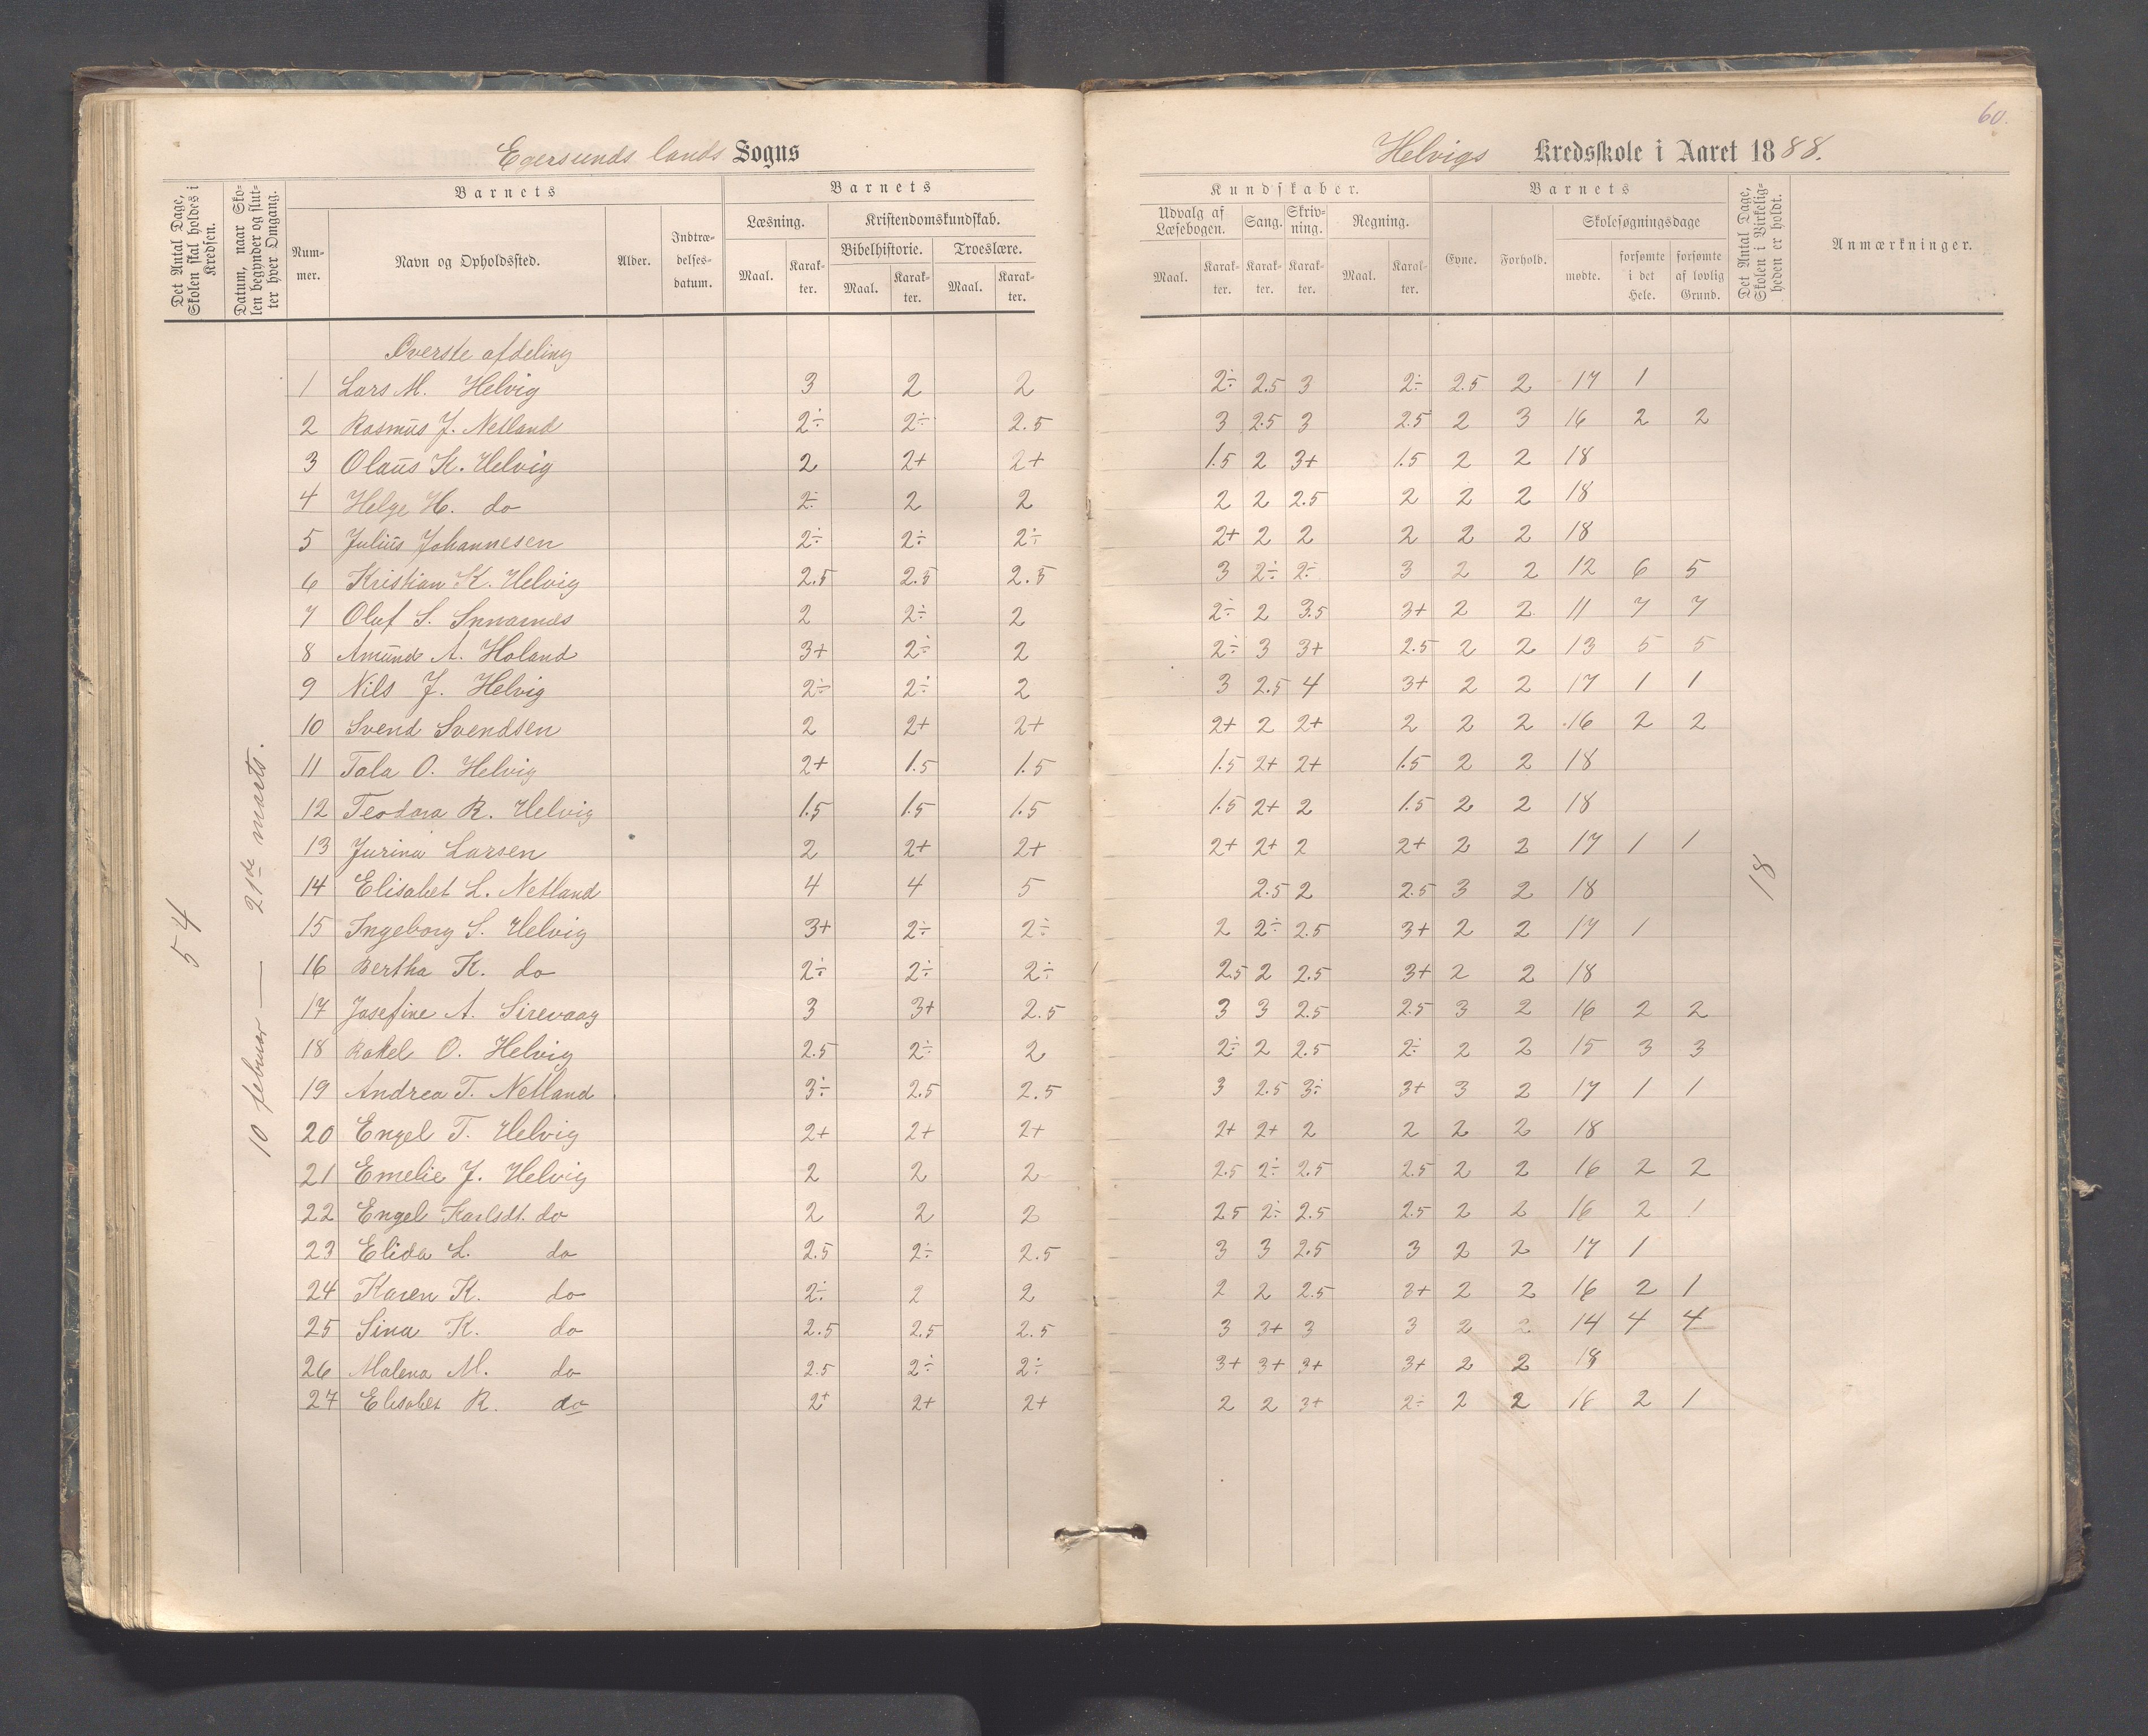 60.
Egersunds lands Sogns
Helvigs Kredsskole i Aaret 1888.
Det Antal Dage, Skolen skal holdes i Kredsen.
Datum, naar Skolen begynder og slutter hver Omgang.
Barnets
Nummer.
Navn og Opholdssted.
Alder.
Indtrædelsesdatum.
Barnets
Læsning.
Maal. Karakter.
Kristendomskundskab.
Bibelhistorie. Troeslære.
Maal. Karakter. Maal. Karakter.
Kundskaber.
Udvalg af Læsebogen. Sang. Skrivning. Regning.
Maal. Karakter. Karakter. Karakter. Maal. Karakter.
Barnets
Evne. Forhold. Skolesøgningsdage
mødte. forsømte i det Hele. forsømte af lovlig Grund.
Det Antal Dage, Skolen i Virkeligheden er holdt.
Anmærkninger.
54
10 februar — 21de marts.
18
Øverste afdeling
1 Lars M. Helvig 3 2 2 2÷ 2.5 3 2÷ 2.5 2 17 1
2 Rasmus J. Netland 2÷ 2÷ 2.5 3 2.5 3 2.5 2 3 16 2 2
3 Olaus K. Helvig 2 2+ 2+ 1.5 2 3+ 1.5 2 2 18
4 Helge H. do 2÷ 2 2 2 2 2.5 2 2 2 18
5 Julius Johannesen 2÷ 2÷ 2÷ 2+ 2 2 2 2 2 18
6 Kristian K. Helvig 2.5 2.5 2.5 3 2÷ 2÷ 3 2 2 12 6 5
7 Oluf S. 2 2÷ 2 2÷ 2 3.5 3+ 2 2 11 7 7
8 Amund A. Holand 3+ 2÷ 2 2÷ 3 3+ 2.5 2 2 13 5 5
9 Nils J. Helvig 2÷ 2÷ 2 3 2.5 4 3+ 2 2 17 1 1
10 Svend Svendsen 2 2+ 2+ 2+ 2 2+ 2 2 2 16 2 2
11 Tala O. Helvig 2+ 1.5 1.5 1.5 2+ 2+ 1.5 2 2 18
12 Teodora R. Helvig 1.5 1.5 1.5 1.5 2+ 2 1.5 2 2 18
13 Jurina Larsen 2 2+ 2+ 2+ 2+ 2 2+ 2 2 17 1 1
14 Elisabet L. Netland 4 4 5 2.5 2 2.5 3 2 18
15 Ingeborg S. Helvig 3+ 2÷ 2÷ 2 2÷ 2.5 3+ 2 2 17 1
16 Bertha K. do 2÷ 2÷ 2÷ 2.5 2 2.5 3+ 2 2 18
17 Josefine A. Sirevaag 3 3+ 2.5 3 3 2.5 2.5 3 2 16 2 2
18 Rakel O. Helvig 2.5 2÷ 2 2÷ 2 2.5 2÷ 2 2 15 3 3
19 Andrea T. Netland 3÷ 2.5 2.5 3 2.5 3÷ 3+ 3 2 17 1 1
20 Engel T. Helvig 2+ 2+ 2+ 2+ 2+ 2 2 2 2 18
21 Emelie J. Helvig 2 2 2 2.5 2÷ 2.5 2.5 2 2 16 2 2
22 Engel Karlsdt. do 2 2 2 2.5 2÷ 2.5 2.5 2 2 16 2 1
23 Elida L. do 2.5 2÷ 2.5 3 3 2.5 3 2 2 17 1
24 Karen K. do 2÷ 2 2 2 2 2.5 3+ 2 2 16 2 1
25 Sina K. do 2.5 2.5 2.5 3 3+ 3 3 2 2 14 4 4
26 Malena M. do 2.5 2÷ 2÷ 3+ 3+ 3+ 3+ 2 2 18
27 Elisabet R. do 2+ 2+ 2+ 2 2 3+ 2÷ 2 2 16 2 1